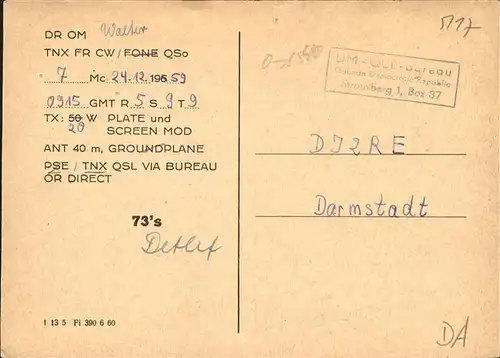 DR OM Walter
TNX FR CW/FONE QSo
7 Mc 24.12.195 59
0915 GMT R 5 S 9 T 9
TX: 50 W PLATE und
20 SCREEN MOD
ANT 40 m, GROUNDPLANE
PSE / TNX QSL VIA BUREAU
OR DIRECT
73's
Detlef
1 13 5 Fi 390 6 60
DM - QSL-Bureau
German Democratic Republic
Strausberg 1, Box 37
DJ2RE
Darmstadt
DA